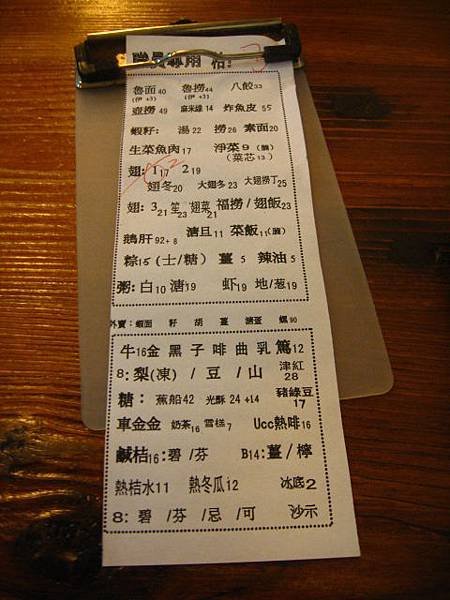 職員專用 枱: 3
魯面40 魯撈44 八餃33
(伊+3) (伊+3)
壺撈49 麻米線14 炸魚皮55
蝦籽: 湯22 撈26 素面20
生菜魚肉17 淨菜9(腩)
(菜芯13)
翅: 1 17 2 19
翅冬20 大翅冬23 大翅撈丁25
翅: 3 21 笙23 翅菜21 福撈/翅飯23
鵝肝92+8 溏旦11 菜飯11(腩)
粽15(士/糖) 薑5 辣油5
粥: 白10 溏19 虾19 地/葱19
外賣: 蝦面 籽 胡 薑 溏蛋 90
牛16金 黑 子 啡 曲 乳 篤12
8: 梨(凍) / 豆 / 山 津紅28
糖: 蕉船42 光酥24+14 豬綠豆17
車金金 奶茶16 雪糕7 Ucc熱啡16
鹹桔16: 碧/芬 B14: 薑/檸
熱桔水11 熱冬瓜12 冰底2
8: 碧 /芬 /忌 /可 沙示